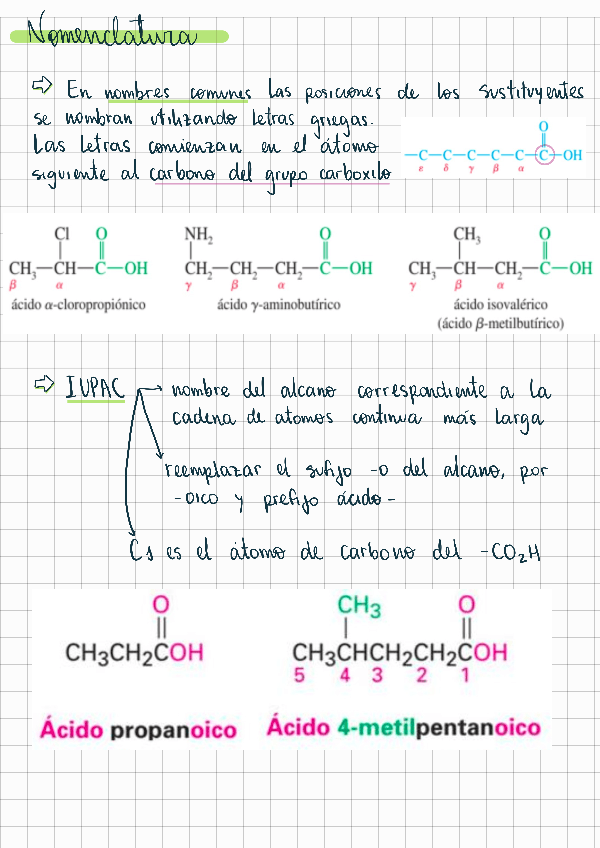 Nomenclatura
⇨ En nombres comunes las posiciones de los sustituyentes
se nombran utilizando letras griegas.
Las letras comienzan en el átomo
siguiente al carbono del grupo carboxilo
O
—C—C—C—C—C—C—OH
ε δ γ β α
Cl O
CH₃—CH—C—OH
β α
ácido α-cloropropiónico
NH₂ O
CH₂—CH₂—CH₂—C—OH
γ β α
ácido γ-aminobutírico
CH₃ O
CH₃—CH—CH₂—C—OH
γ β α
ácido isovalérico
(ácido β-metilbutírico)
⇨ IUPAC → nombre del alcano correspondiente a la
cadena de atomos continua más larga
reemplazar el sufijo -o del alcano, por
-oico y prefijo ácido-
C₁ es el átomo de carbono del -CO₂H
O
CH₃CH₂COH
Ácido propanoico
CH₃ O
CH₃CHCH₂CH₂COH
5 4 3 2 1
Ácido 4-metilpentanoico